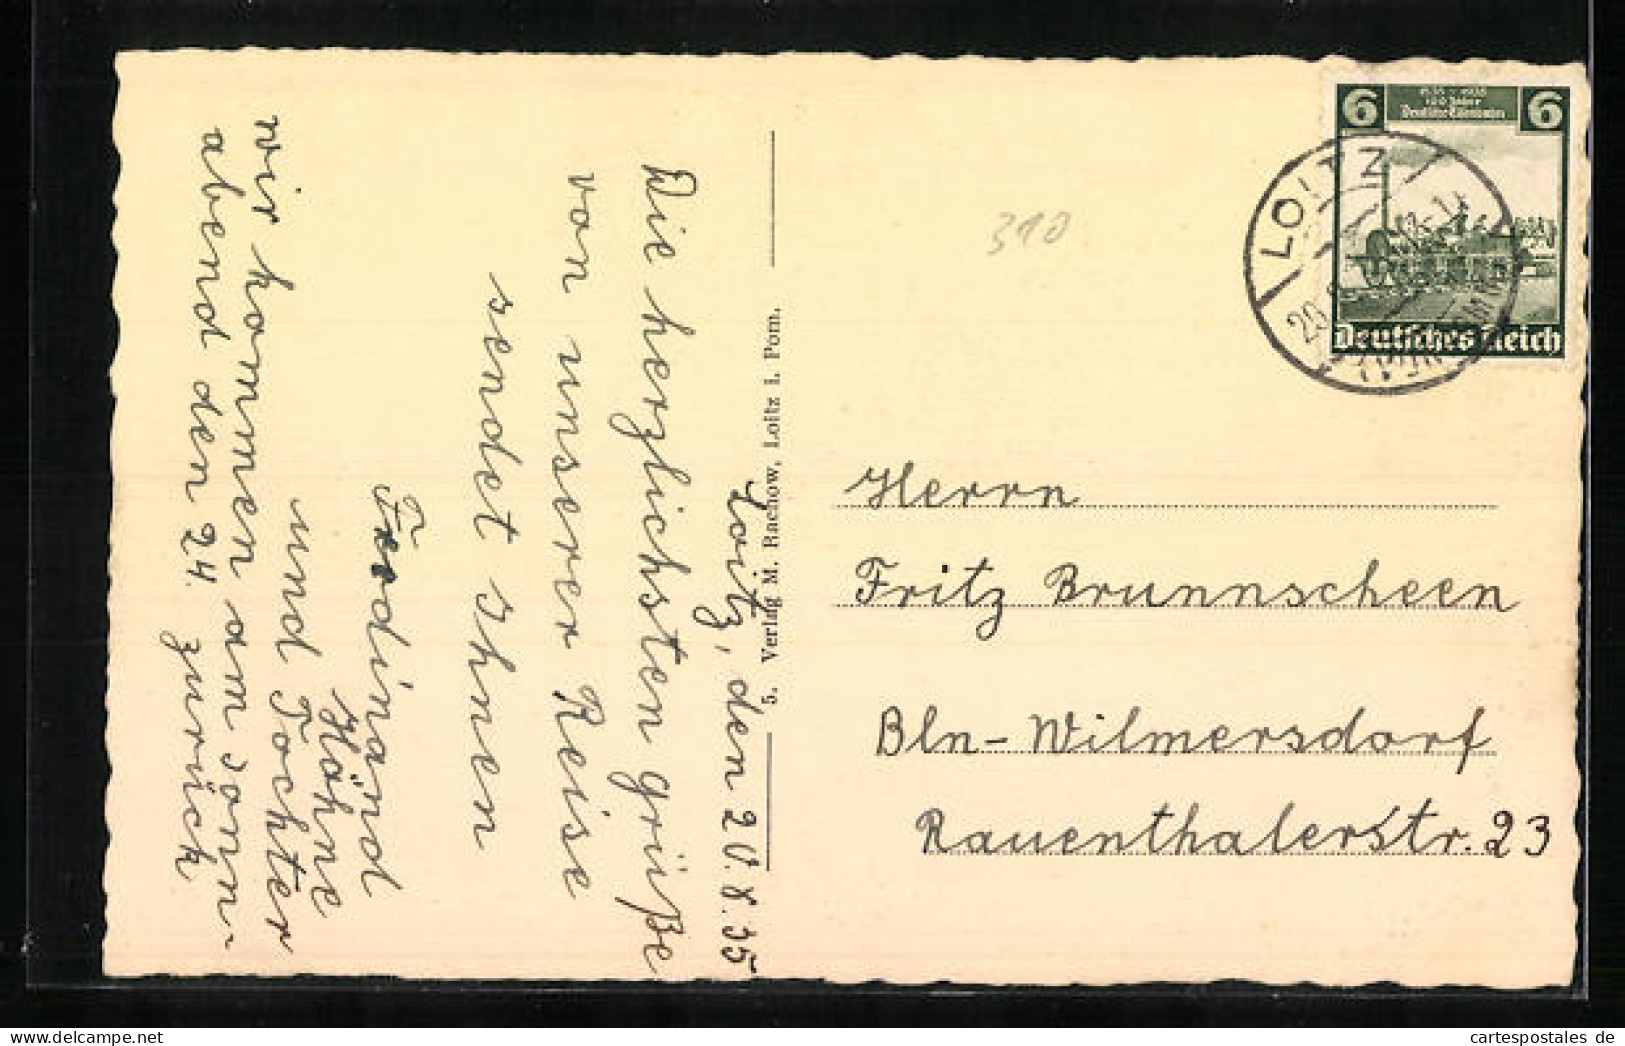 Loitz, den 20.8.35
Die herzlichsten grüße
von unserer Reise
sendet ihnen
Ferdinand
Höhne
und Töchter
wir kommen am Sonn-
abend den 24. zurück
5. Verlag M. Rachow, Loitz i. Pom.
310
6 1835 - 1935 6
100 Jahre
Deutsche Eisenbahn
Deutsches Reich
LOITZ
20.
Herrn
Fritz Brunnscheen
Bln-Wilmersdorf
Rauenthalerstr. 23
cartespostales de